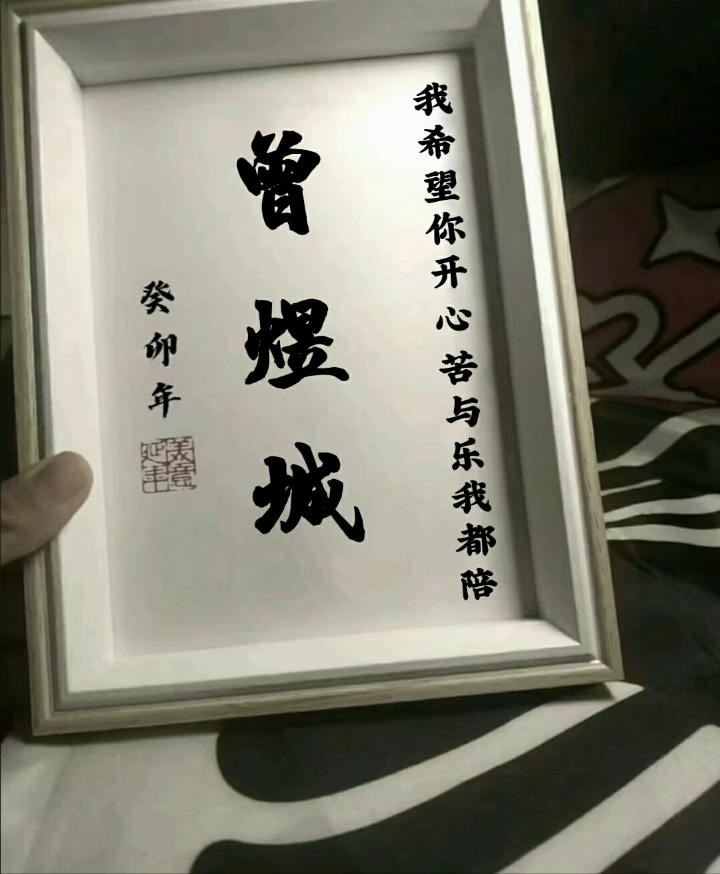 我希望你开心苦与乐我都陪
曾煜城
癸卯年
美意延年